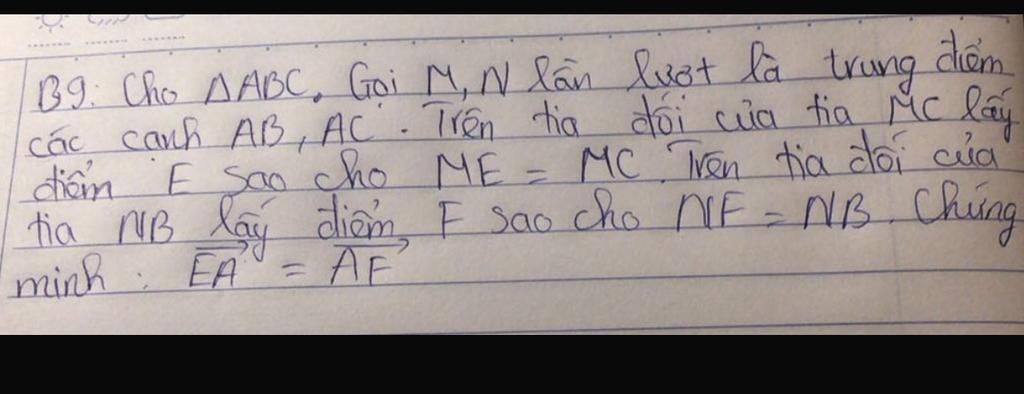 B9. Cho ΔABC. Gọi M, N lần lượt là trung điểm
các cạnh AB, AC. Trên tia đối của tia MC lấy
điểm E sao cho ME = MC. Trên tia đối của
tia NB lấy điểm F sao cho NF = NB. Chứng
minh: $\overrightarrow{EA} = \overrightarrow{AF}$